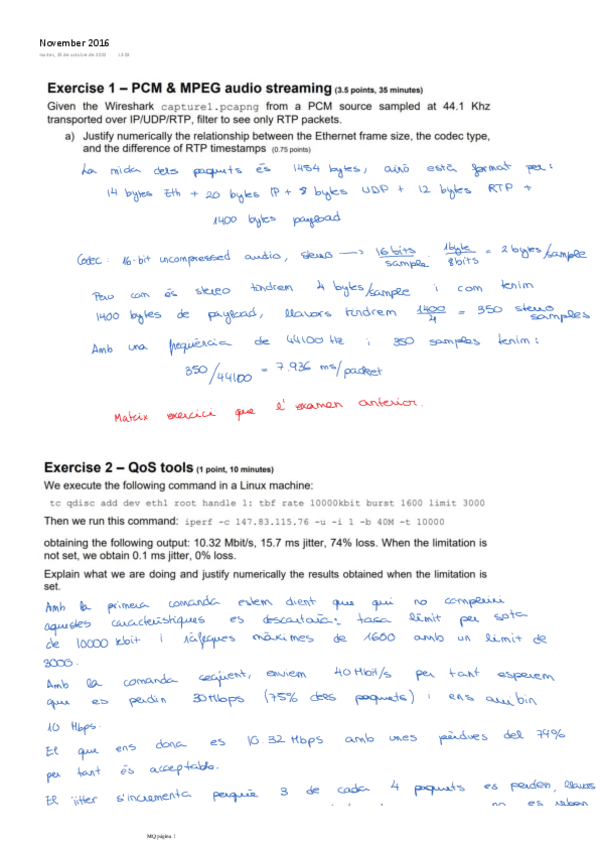 November 2016
Exercise 1 – PCM & MPEG audio streaming (3.5 points, 35 minutes)
Given the Wireshark capture1.pcapng from a PCM source sampled at 44.1 Khz
transported over IP/UDP/RTP, filter to see only RTP packets.
a) Justify numerically the relationship between the Ethernet frame size, the codec type,
and the difference of RTP timestamps (0.75 points)
La mida dels paquets és 1454 bytes, això està format per:
14 bytes Eth + 20 bytes IP + 8 bytes UDP + 12 bytes RTP +
1400 bytes payload
Codec: 16-bit uncompressed audio, stereo → 16 bits/sample · 1 byte/8 bits = 2 bytes/sample
Pero com és stereo tindrem 4 bytes/sample i com tenim
1400 bytes de payload, llavors tindrem 1400/4 = 350 stereo samples
Amb una freqüència de 44100 Hz i 350 samples tenim:
350/44100 = 7.936 ms/packet
Mateix exercici que l'examen anterior.
Exercise 2 – QoS tools (1 point, 10 minutes)
We execute the following command in a Linux machine:
tc qdisc add dev eth1 root handle 1: tbf rate 10000kbit burst 1600 limit 3000
Then we run this command: iperf -c 147.83.115.76 -u -i 1 -b 40M -t 10000
obtaining the following output: 10.32 Mbit/s, 15.7 ms jitter, 74% loss. When the limitation is
not set, we obtain 0.1 ms jitter, 0% loss.
Explain what we are doing and justify numerically the results obtained when the limitation is
set.
Amb la primera comanda estem dient que qui no compleixi
aquestes característiques es descartarà: tasa límit per sota
de 10000 kbit i ràfegues màximes de 1600 amb un límit de
3000.
Amb la comanda següent, enviem 40 Mbit/s per tant esperem
que es perdin 30 Mbps (75% dels paquets) i ens arribin
10 Mbps.
El que ens dona es 10.32 Mbps amb unes pèrdues del 74%
per tant és acceptable.
El jitter s'incrementa perquè 3 de cada 4 paquets es perden, llavors
no es reben
MQ página 1